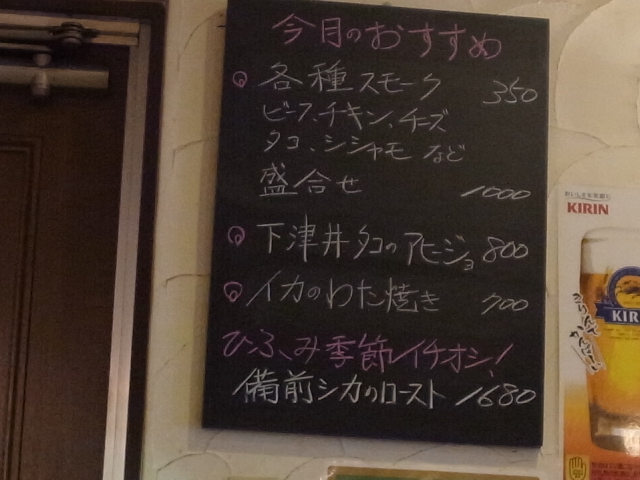 今月のおすすめ
各種スモーク 350
ビーフ、チキン、チーズ
タコ、シシャモ など
盛合せ 1000
下津井タコのアヒージョ 800
イカのわた焼き 700
ひふみ季節イチオシ!
備前シカのロースト 1680
KIRIN
KIR